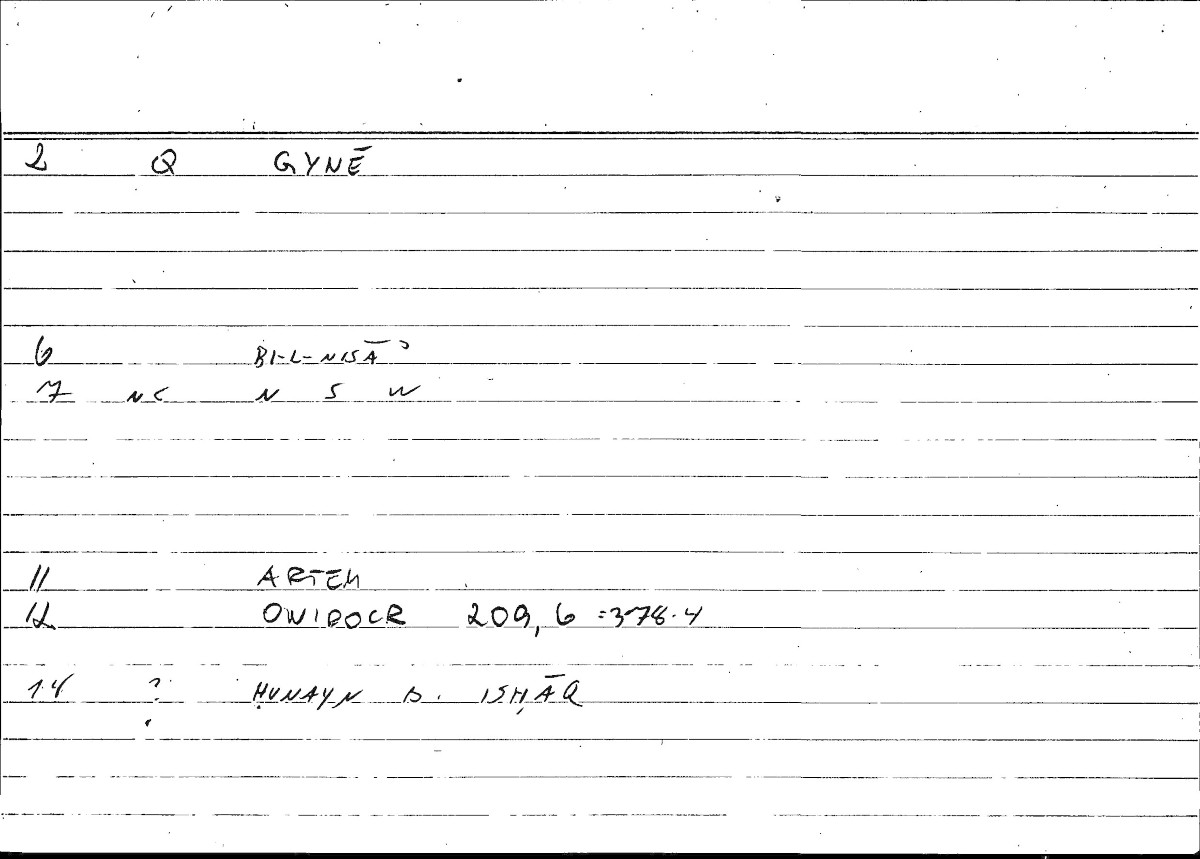 2 Q GYNĒ
6 BI-L-NISĀʾ
7 NC N S W
11 ARTEM
12 ONIROCR 209, 6 = 378.4
14 ? ḤUNAYN B. ISḤĀQ